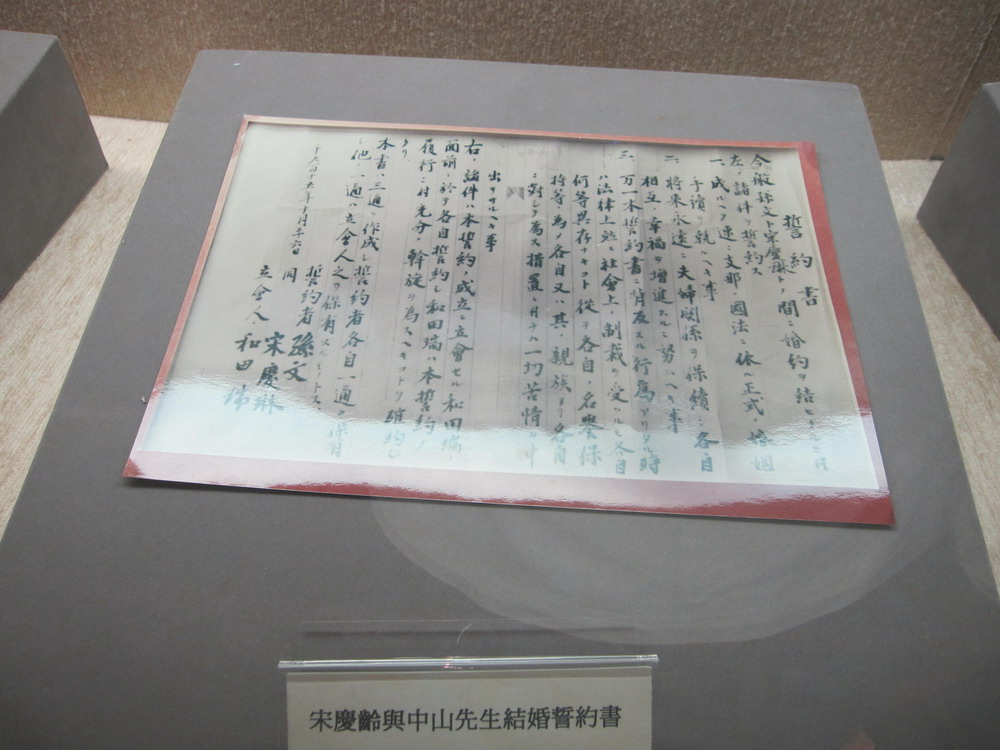 誓約書
今般孫文ト宋慶琳トノ間ニ婚約ヲ結ヒタルニ付
左ノ諸件ヲ誓約ス
一、成ルヘク速ニ支那ノ國法ニ依ル正式ノ婚姻
手續ヲ執ルヘキ事
二、将来永遠ニ夫婦関係ヲ保續シ各自
相互ノ幸福ヲ増進スルニ努ムヘキ事
三、万一本誓約書ニ背反スル行為アリタル時
ハ法律上並ニ社會上ノ制裁ヲ受クルモ各自
何等異存ナキコト従テ各自ノ名譽保
持等ノ為メ各自又ハ其ノ親族ヨリ各自
ニ対シテ為ス措置ニ付テハ一切苦情ヲ申
出テサルヘキ事
右ノ諸件ハ本誓約ノ成立ニ立會セル和田瑞
面前ニ於テ各自誓約シ和田瑞ハ本誓約ノ
履行ニ付充分ノ斡旋ヲ為スヘキコトヲ確約シ
タリ
本書ハ三通ヲ作成シ誓約者各自一通ヲ保有
シ他ノ一通ハ立會人之ヲ保有スルモノトス
千九百十五年十月二十六日
誓約者 孫文
同 宋慶琳
立會人 和田瑞
宋慶齡與中山先生結婚誓約書